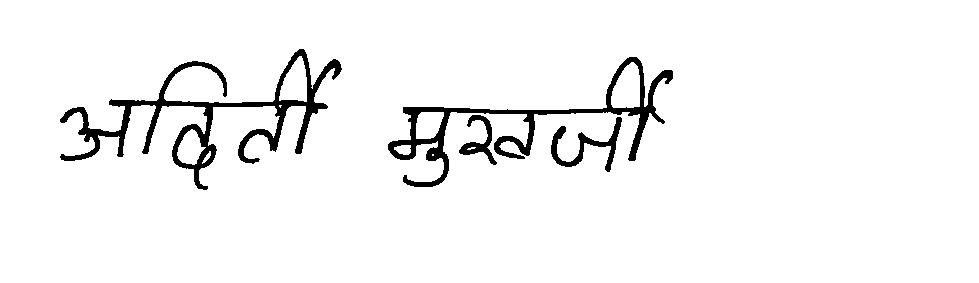 अदिर्ती मुखर्जी